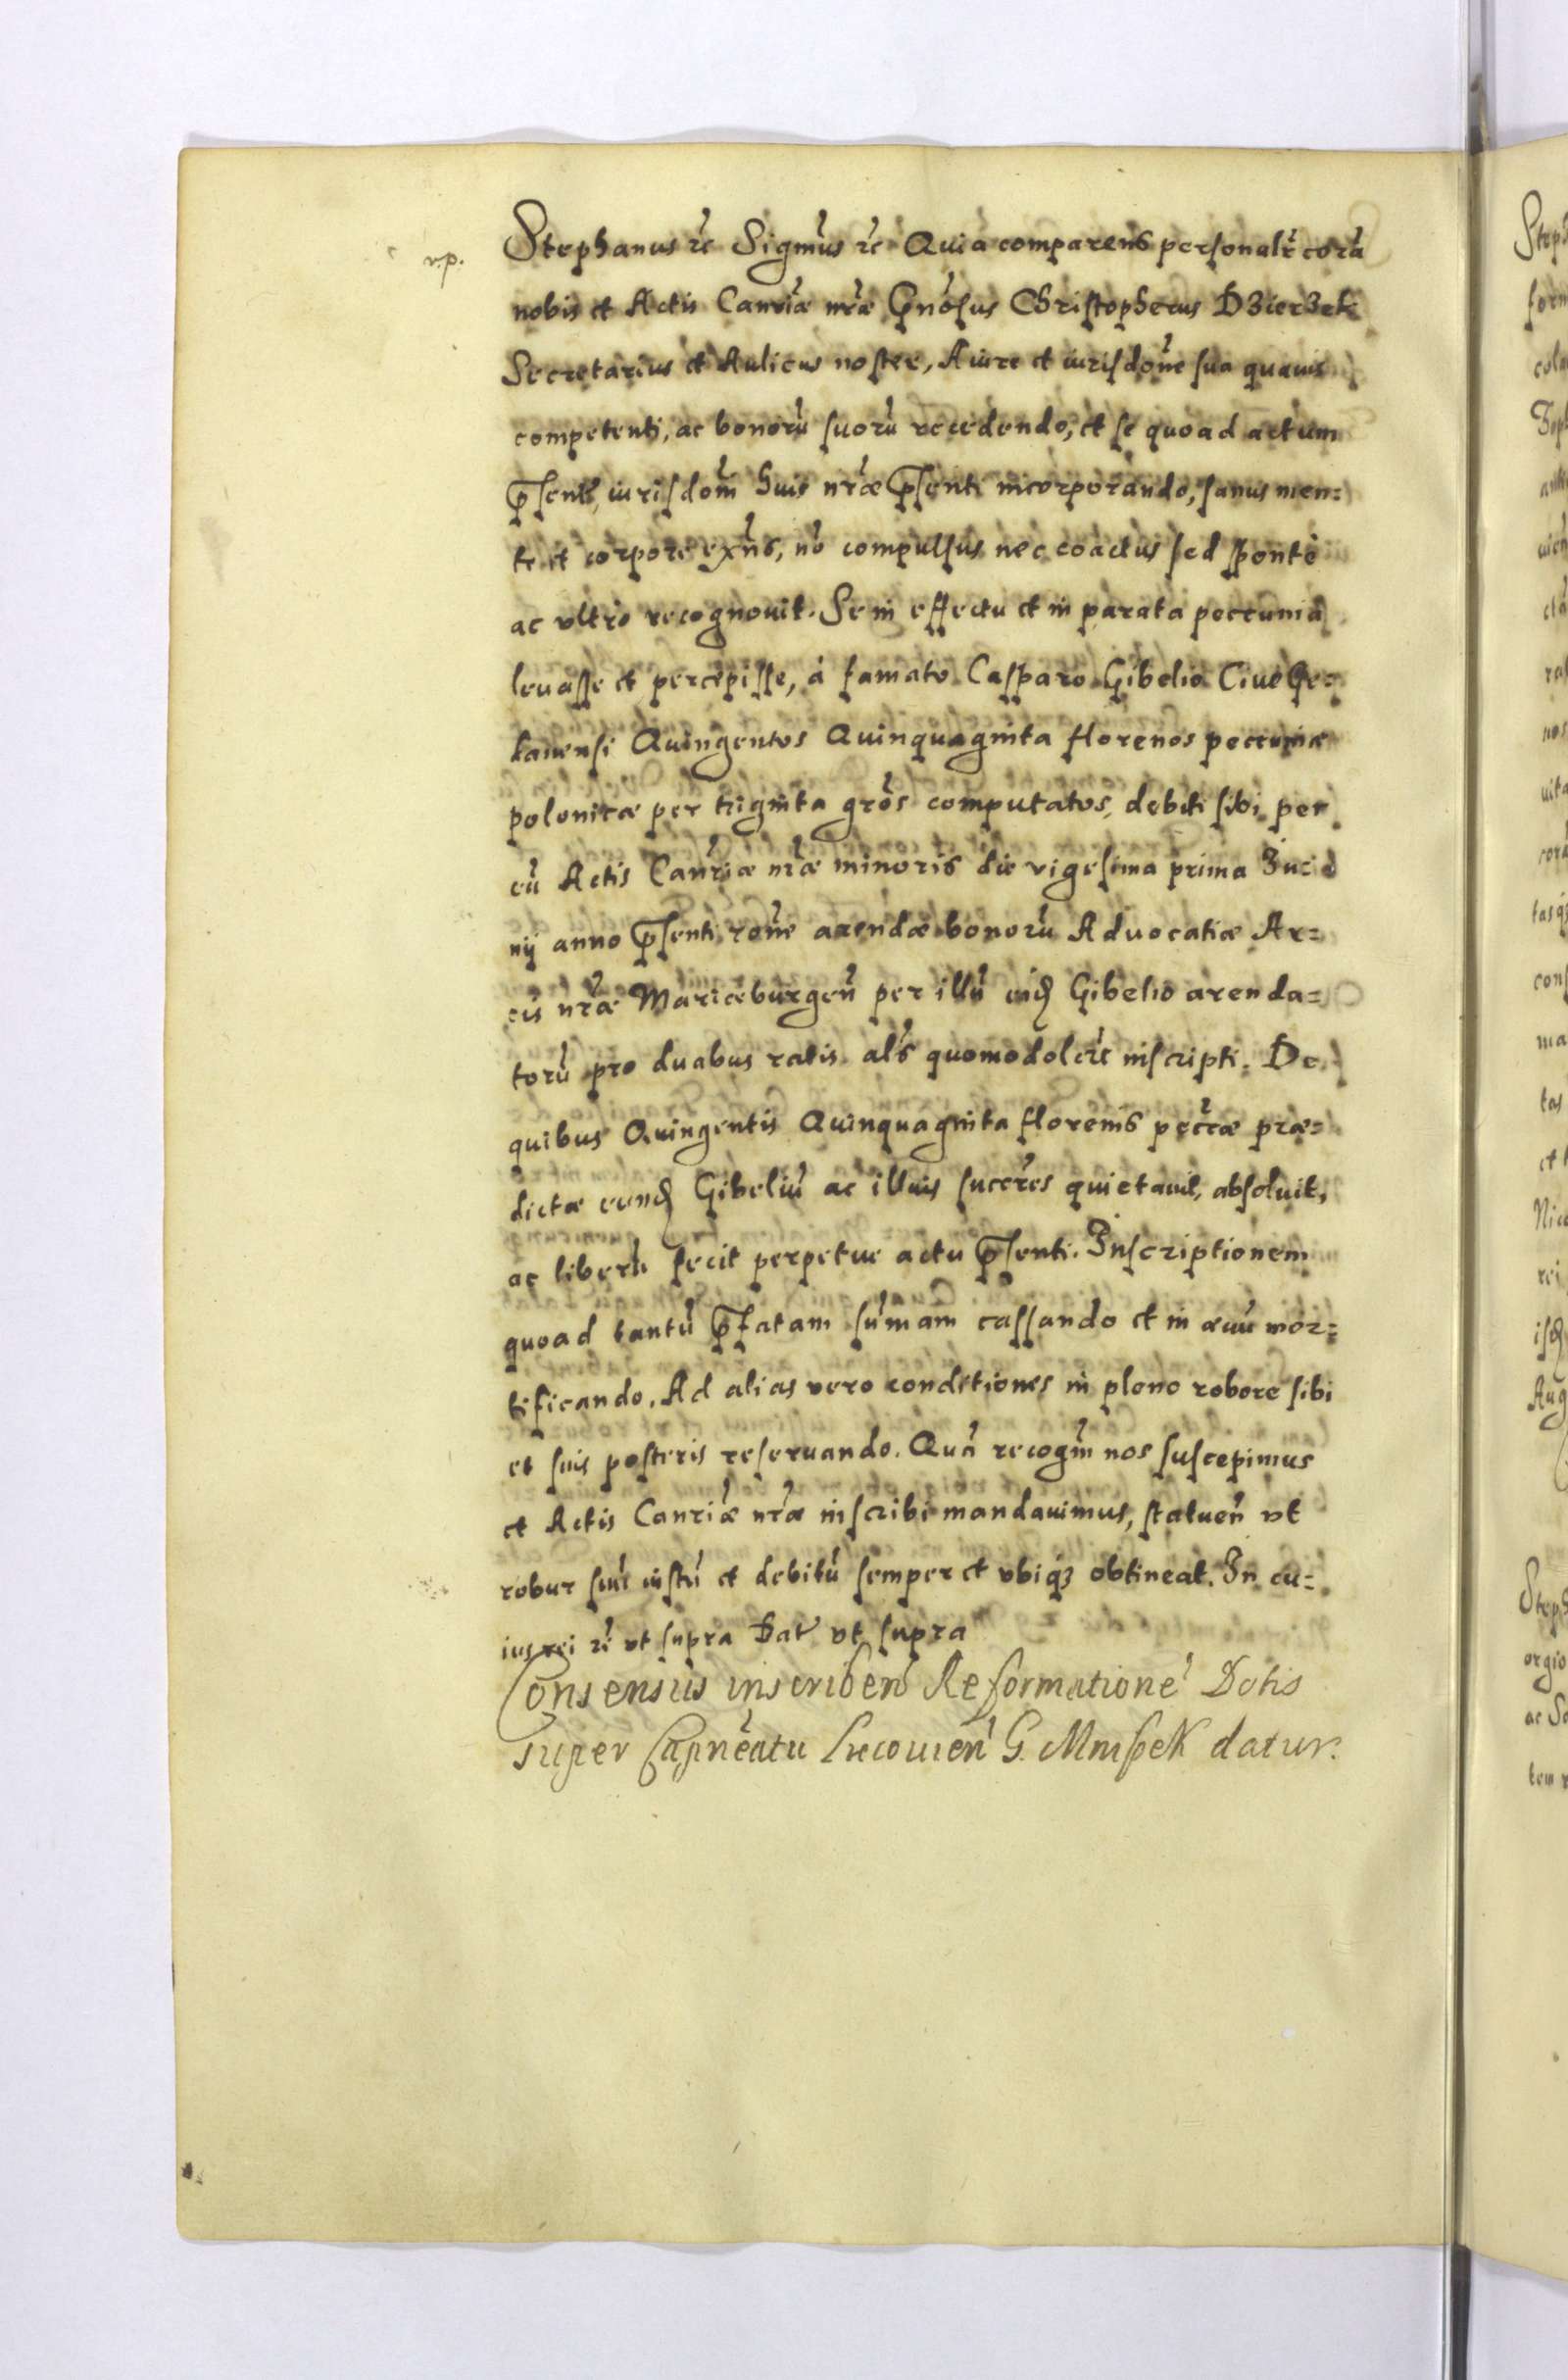 v.p.
Stephanus etc Sigm̃us etc Quia comparens personalr̃ corã
nobis et Actis Canr̃iæ nr̃æ Gnõsus Christopherus Dzierzek
Secretarius et Aulicus noster, A iure et iurisdoñe sua quauis
competenti, ac bonorũ suorũ recedendo, et se quoad actum
p̃sentẽ iurisdoñi huic nr̃æ p̃senti incorporando, sanus men=
te et corpore exñs, nõ compulsus nec coactus sed sponte
ac vltro recognouit. Se in effectu et in parata peccunia
leuasse et percepisse, a famato Casparo Gibelio Ciue Ge=
danensi Quingentos Quinquaginta florenos peccuniæ
polonicæ per triginta grõs computatos, debiti sibi per
eũ Actis Canr̃iæ nr̃æ minoris die vigesima prima Iu
nij anno p̃senti, roñe arendæ bonorũ Aduocatiæ Ar=
cis nr̃æ Mariæburgeñ per illũ eid Gibelio arenda=
torũ pro duabus ratis als̃ quomodolr̃ inscripti. De
quibus Quingentis Quinquaginta florenis pecc̃æ præ=
dictæ eund Gibeliũ ac illius succr̃es quietauit, absoluit,
ac liberũ fecit perpetue actu p̃senti. Inscriptionem
quoad tantũ p̃fatam sum̃am cassando et in æuũ mor=
tificando. Ad alias vero conditiones in pleno robore sibi
et suis posteris reseruando. Quã recogñ nos suscepimus
et Actis Canr̃iæ nr̃æ inscribi mandauimus, statueñ vt
robur suũ iustũ et debitũ semper et vbiqz obtineat. In cu=
ius rei etc vt supra Dat̃ vt supra
Consensus inscribeñ Reformationẽ Dotis
super Capñeatu Lucouieñ G. Mnisek datur.